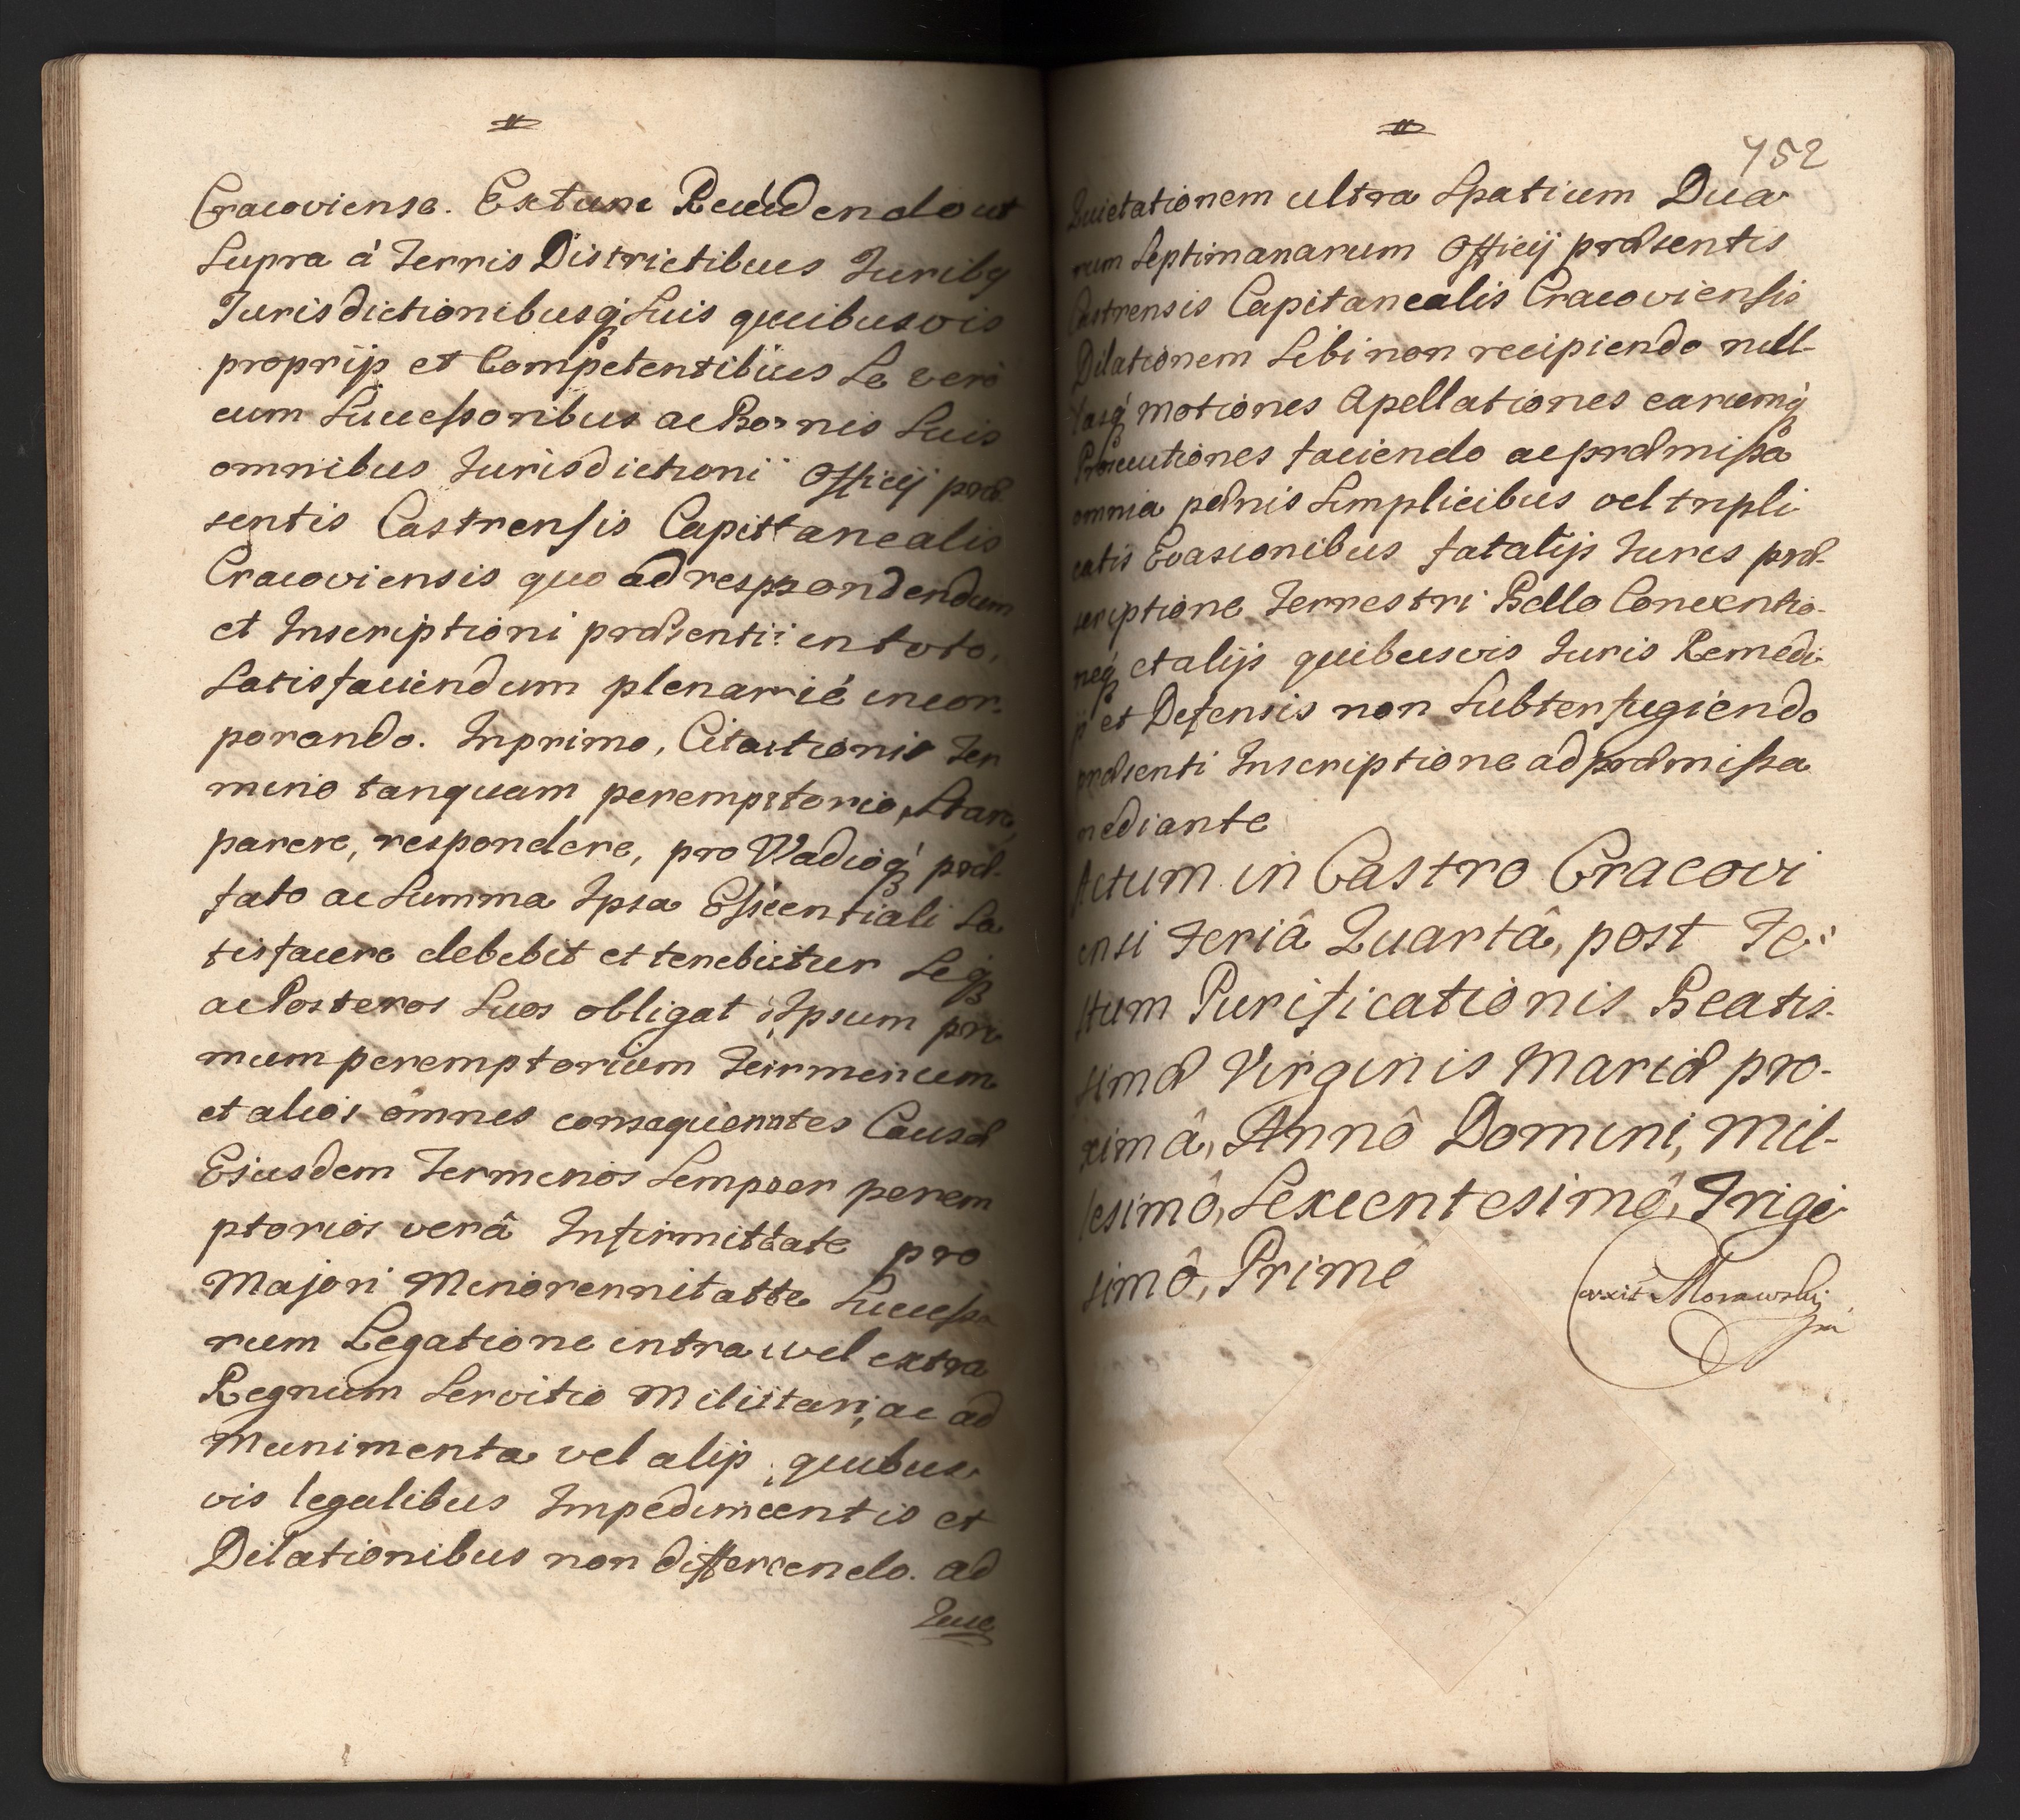 Cracoviense. Extunc Recedendo ut
Supra à Terris Districtibus Juribq
Jurisdictionibusq́ Suis quibusvis
proprijs et Competentibus Se vero
cum Successoribus ac Bonis Suis
omnibus Jurisdictioni Officij præ
sentis Castrensis Capittanealis
Cracoviensis quo ad respondendum
et Inscriptioni præsenti in toto,
Satisfaciendum plenarié incor-
porando. Inprimo, Citationis Ter
mino tanquam peremptorio, Stare,
parere, respondere, pro Vadioq́ præ-
fato ac Summa Ipsa Essentiali Sa
tisfacere debebit et tenebitur Seq
ac Posteros Suos obligat Ipsum pri
mum peremptorium Terminum
et alios omnes consequentes Causæ
Ejusdem Terminos Semper perem
ptorios verâ Infirmitate pro
Majori Minorennitatte Successo
rum Legatione intra vel extra
Regnum Servitio Militari, ac ad
Munimenta vel alijs, quibus
vis legalibus Impedimentis et
Dilationibus non differendo. ad
=
752
Quietationem ultra Spatium Dua
rum Septimanarum Officij præsentis
Castrensis Capitanealis Cracoviensis
Dilationem Sibi non recipiendo null-
lasq́ motiones Apellationes earumq́
Prosecutiones faciendo ac præmissa
omnia pænis Simplicibus vel tripli
catis Evasionibus fatalijs Juris præ-
scriptione Terrestri Bello Conventio-
neq́ et alijs quibusvis Juris Remedi
js et Defensis non Subterfugiendo
præsenti Inscriptione ad præmissa
mediante
Actum in Castro Cracovi
ensi Feriâ Quartâ, post Fe:
stum Purificationis Beatis-
simæ Virginis Mariæ pro-
ximâ, Annô Domini, Mil-
lesimô, Sexcentesimô, Trige
simô, Primô
Morawski